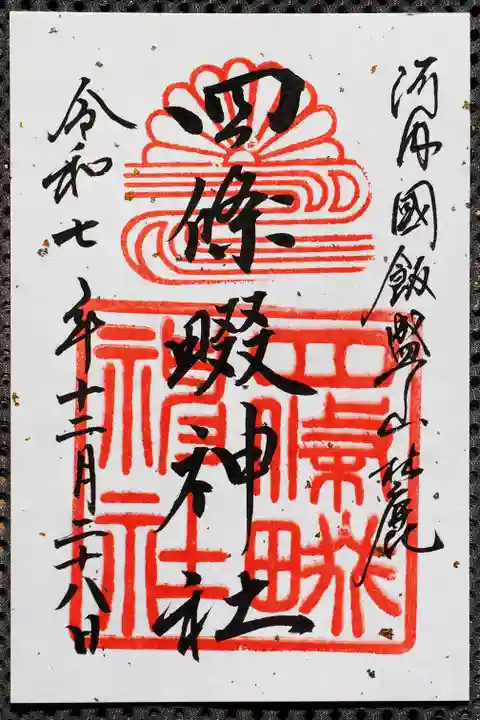 河内國飯盛山麓
四條畷神社
四條畷神社
令和七年十二月二十八日